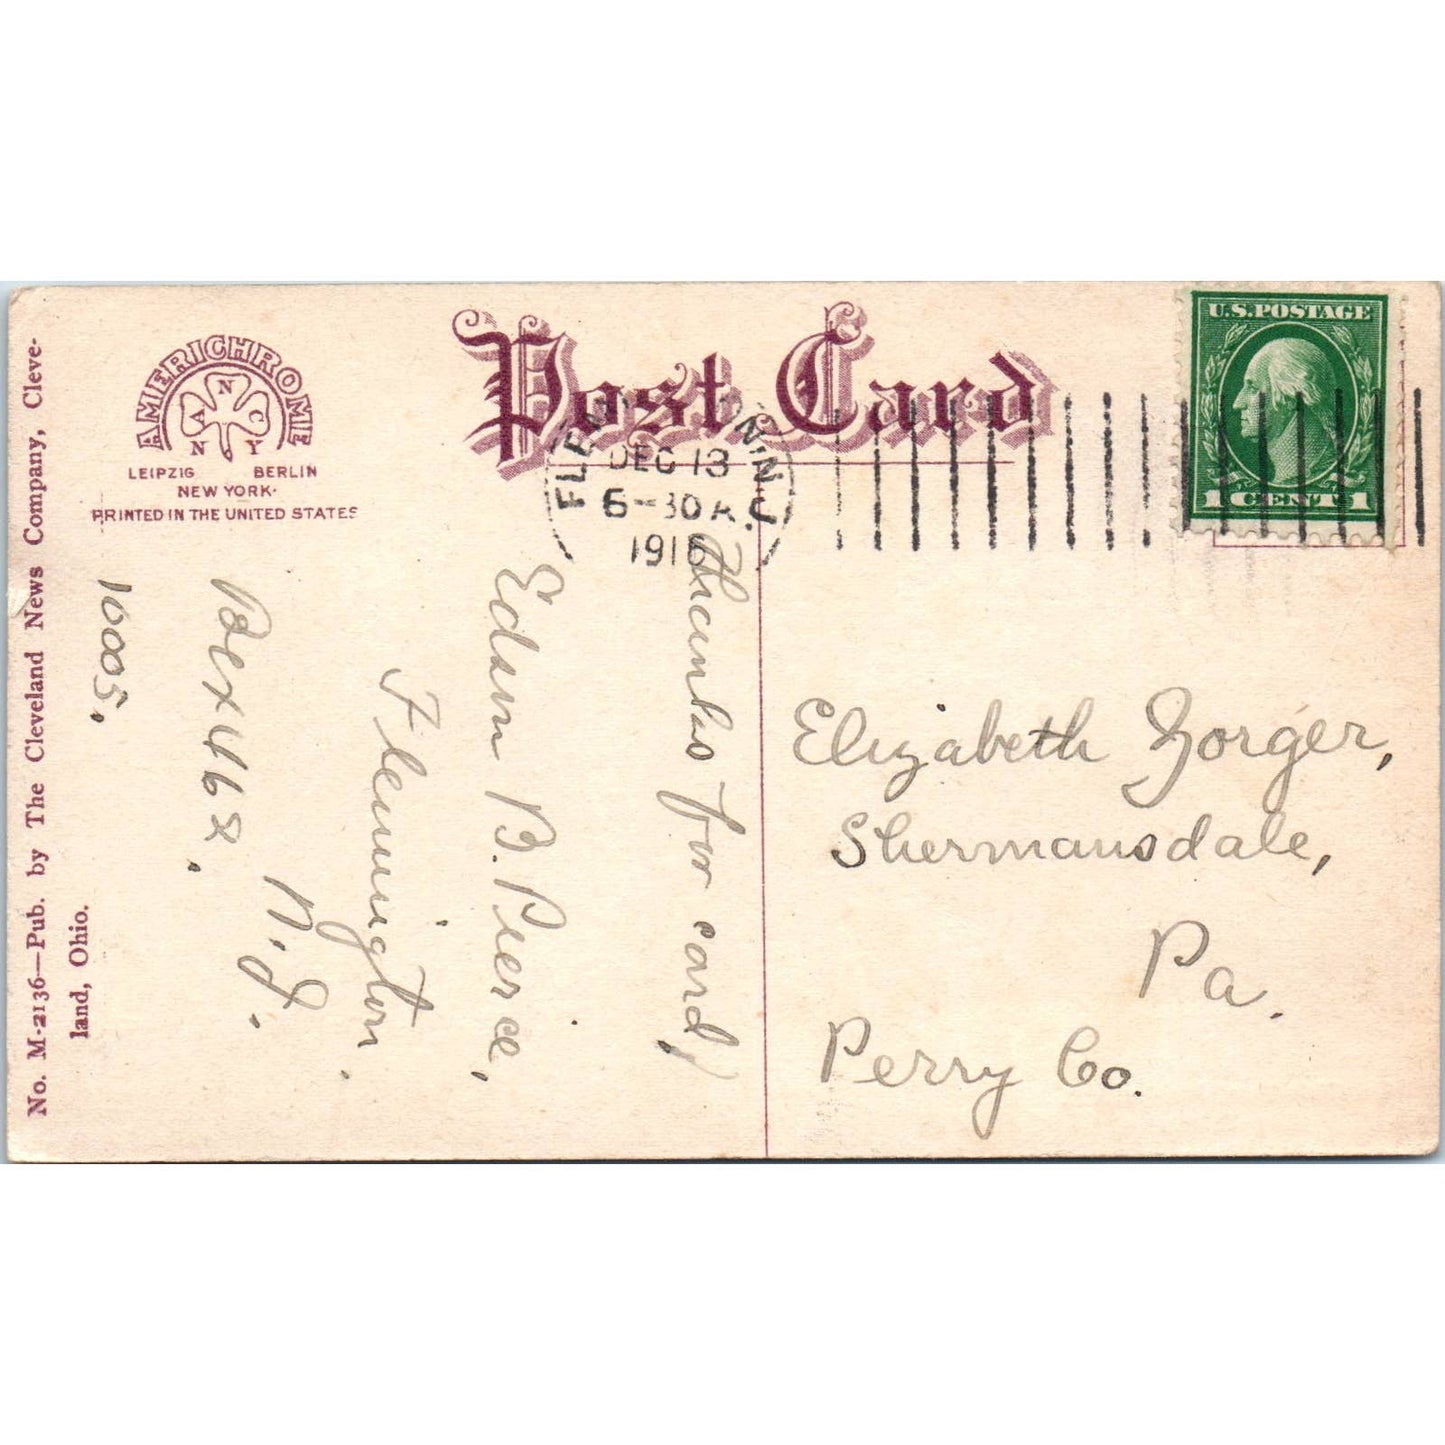 No. M-2136—Pub. by The Cleveland News Company, Cleve-
land, Ohio.
AMERICHROME
N
A C
N Y
LEIPZIG BERLIN
NEW YORK.
PRINTED IN THE UNITED STATES
Post Card
DEC 13
6-30 A.
1916
N.J.
U.S. POSTAGE
1 CENT 1
Thanks for card,
Edson B. Pierce,
Flemington.
N. J.
Box 462.
1000S.
Elizabeth Zorger,
Shermansdale,
Pa.
Perry Co.